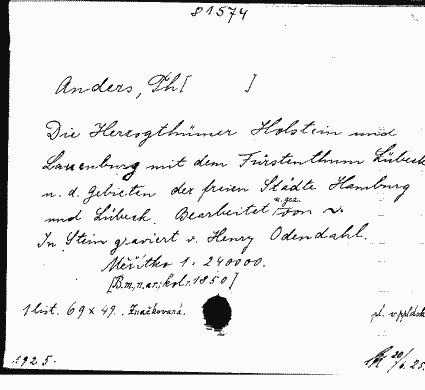 81574
Anders, Th[ ]
Die Herzogthümer Holstein und
Lauenburg mit dem Fürstenthum Lübeck
u. d. Gebieten der freien Städte Hamburg
und Lübeck. Bearbeitet u. gez. von ~.
In Stein graviert v. Henry Odendahl.
Měřítko 1:240000.
[B.m,n.a r; kol. r. 1850]
1 list. 69 x 49. Značkovaná. pl. v pldsk
1925. 20/ 25.